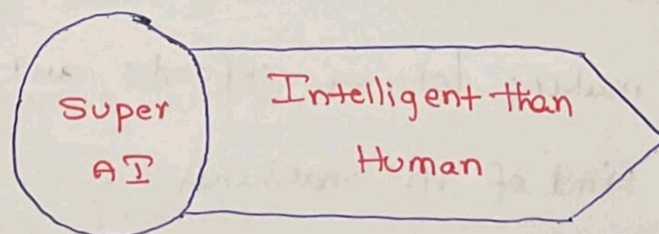 Super
AI
Intelligent than
Human